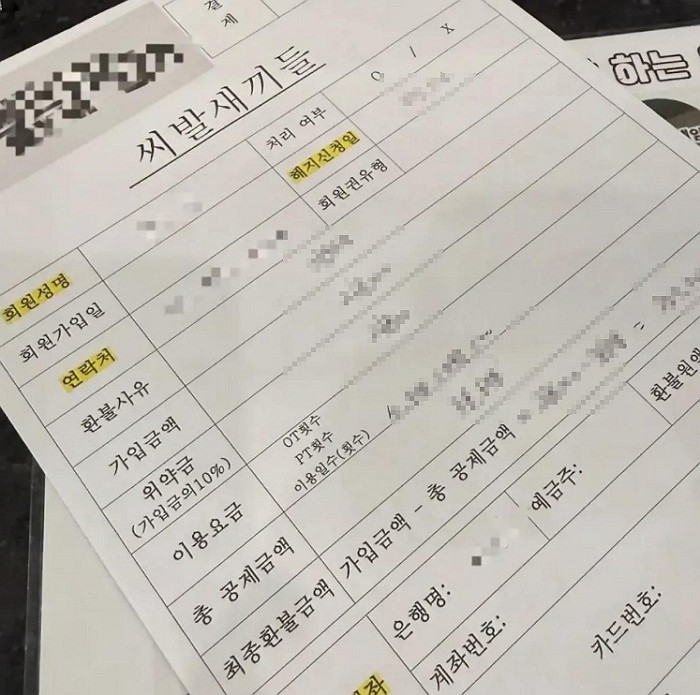 결
제
하는
씨발새끼들
처리 여부
O / X
해지신청일
회원권유형
회원성명
회원가입일
연락처
환불사유
가입금액
위약금
(가입금의10%)
이용요금
OT횟수
PT횟수
이용일수(횟수)
총 공제금액
최종환불금액
가입금액 - 총 공제금액
=
환불원액
은행명:
예금주:
계좌번호:
카드번호:
좌